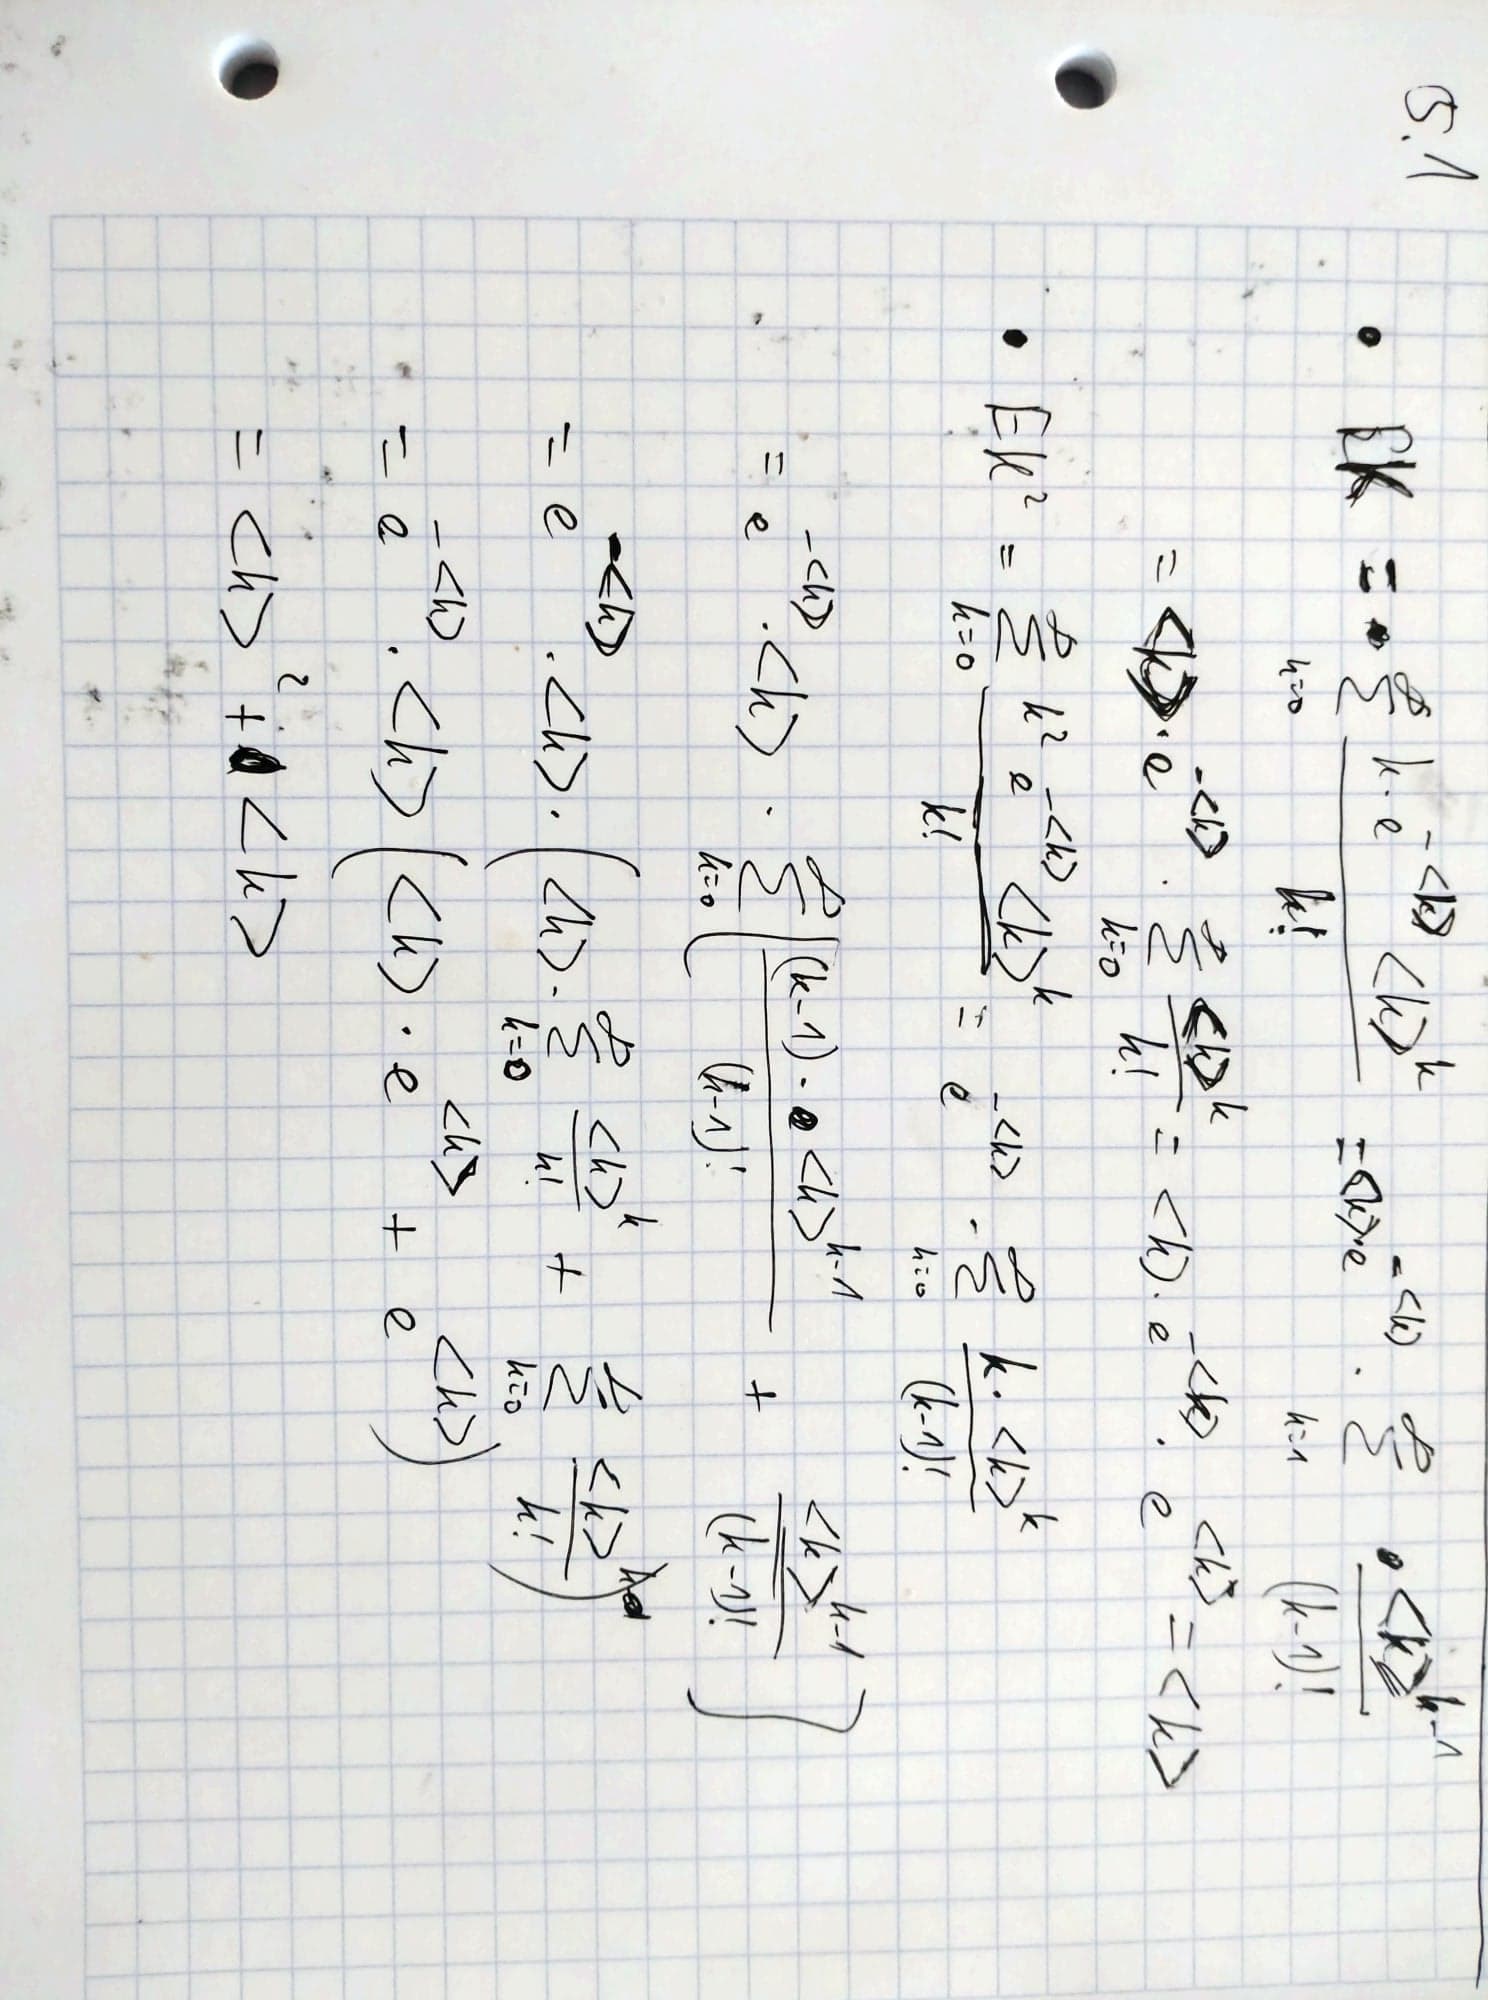 5.1
• EK = ∑_{k=0}^{∞} \frac{k · e^{-<k>} <k>^k}{k!} = <k> · e^{-<k>} · ∑_{k=1}^{∞} \frac{<k>^{k-1}}{(k-1)!}
= <k> · e^{-<k>} · ∑_{k=0}^{∞} \frac{<k>^k}{k!} = <k> · e^{-<k>} · e^{<k>} = <k>
• Ek² = ∑_{k=0}^{∞} \frac{k² e^{-<k>} <k>^k}{k!} = e^{-<k>} · ∑_{k=0}^{∞} \frac{k · <k>^k}{(k-1)!}
= e^{-<k>} · <k> · ∑_{k=0}^{∞} [ \frac{(k-1) · <k>^{k-1}}{(k-1)!} + \frac{<k>^{k-1}}{(k-1)!} ]
= e^{-<k>} · <k> · ( <k> · ∑_{k=0}^{∞} \frac{<k>^k}{k!} + ∑_{k=0}^{∞} \frac{<k>^k}{k!} )
= e^{-<k>} · <k> ( <k> · e^{<k>} + e^{<k>} )
= <k>² + <k>